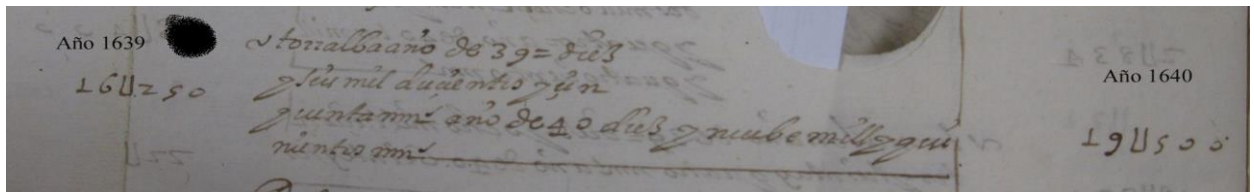 Año 1639
v torralba año de 39 = diez
16U250
y seis mil ducientos y çin
quenta mrs año de 40 diez y nuebe mill y qui
nientos mrs
Año 1640
19U500